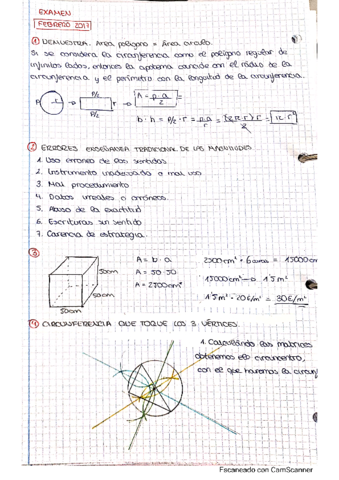 EXAMEN
FEBRERO 2017
① DEMUESTRA. Área polígono = Área círculo.
Si se considera la circunferencia como el polígono regular de
infinitos lados, entonces la apotema coincide con el radio de la
circunferencia y el perímetro con la longitud de la circunferencia.
P/2 P/2 A = p·a / 2
b·h = P/2 · r = p·a / r = (2π·r)·r / 2 = π·r²
② ERRORES ENSEÑANZA TRADICIONAL DE LAS MAGNITUDES
1. Uso erróneo de los sentidos.
2. Instrumento inadecuado o mal uso
3. Mal procedimiento
4. Datos irreales o erróneos.
5. Abuso de la exactitud
6. Escrituras sin sentido
7. Carencia de estrategia.
③
50cm
50cm
50cm
A = b·a
A = 50·50
A = 2500cm²
2500cm² · 6 caras = 15000cm
15000cm² → 1'5m²
1'5m² · 20€/m² = 30€/m²
④ CIRCUNFERENCIA QUE TOQUE LOS 3 VÉRTICES.
1. Calculando las mediatrices
obtenemos el circuncentro,
con el que haremos la circunf
Escaneado con CamScanner